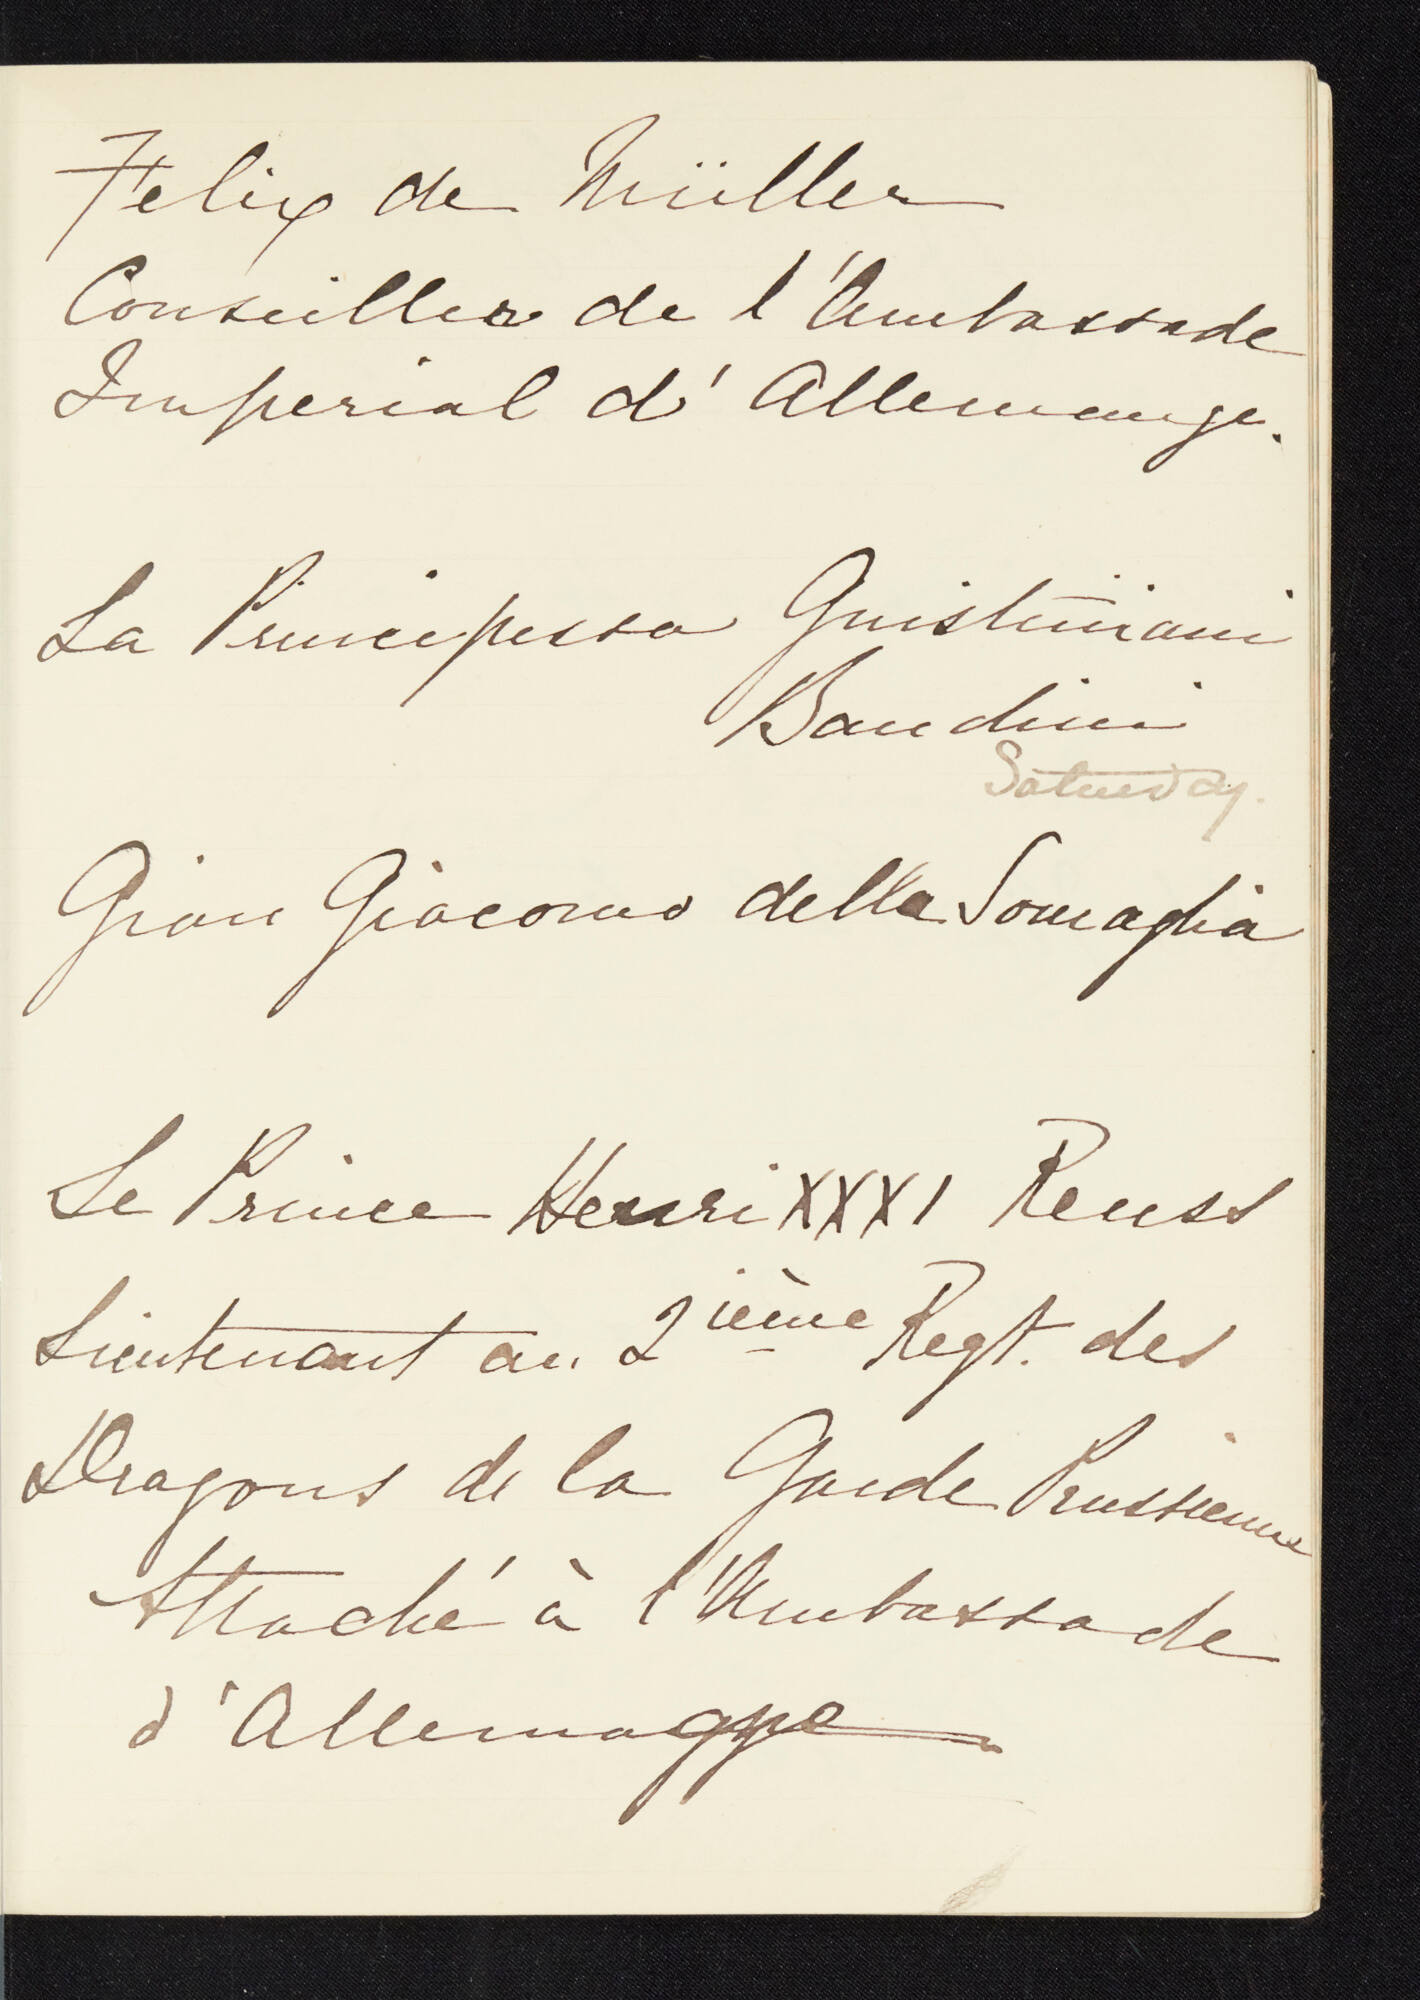 Felix de Müller
Conseiller de l'Ambassade
Imperial d'Allemange.
La Principessa Guistiniani
Bandini
Saturday.
Gian Giacomo della Somaglia
Le Prince Henri XXXI Reuss
Lieutenant au 2ième Regt. des
Dragons de la Garde Prussienne
Attaché à l'Ambassade
d'Allemagne